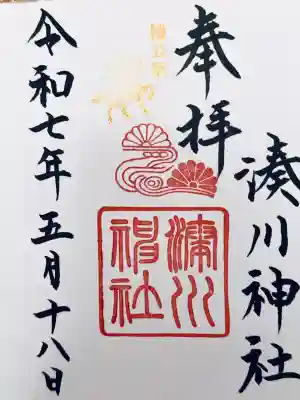 奉拝
湊川神社
湊川
神社
令和七年五月十八日